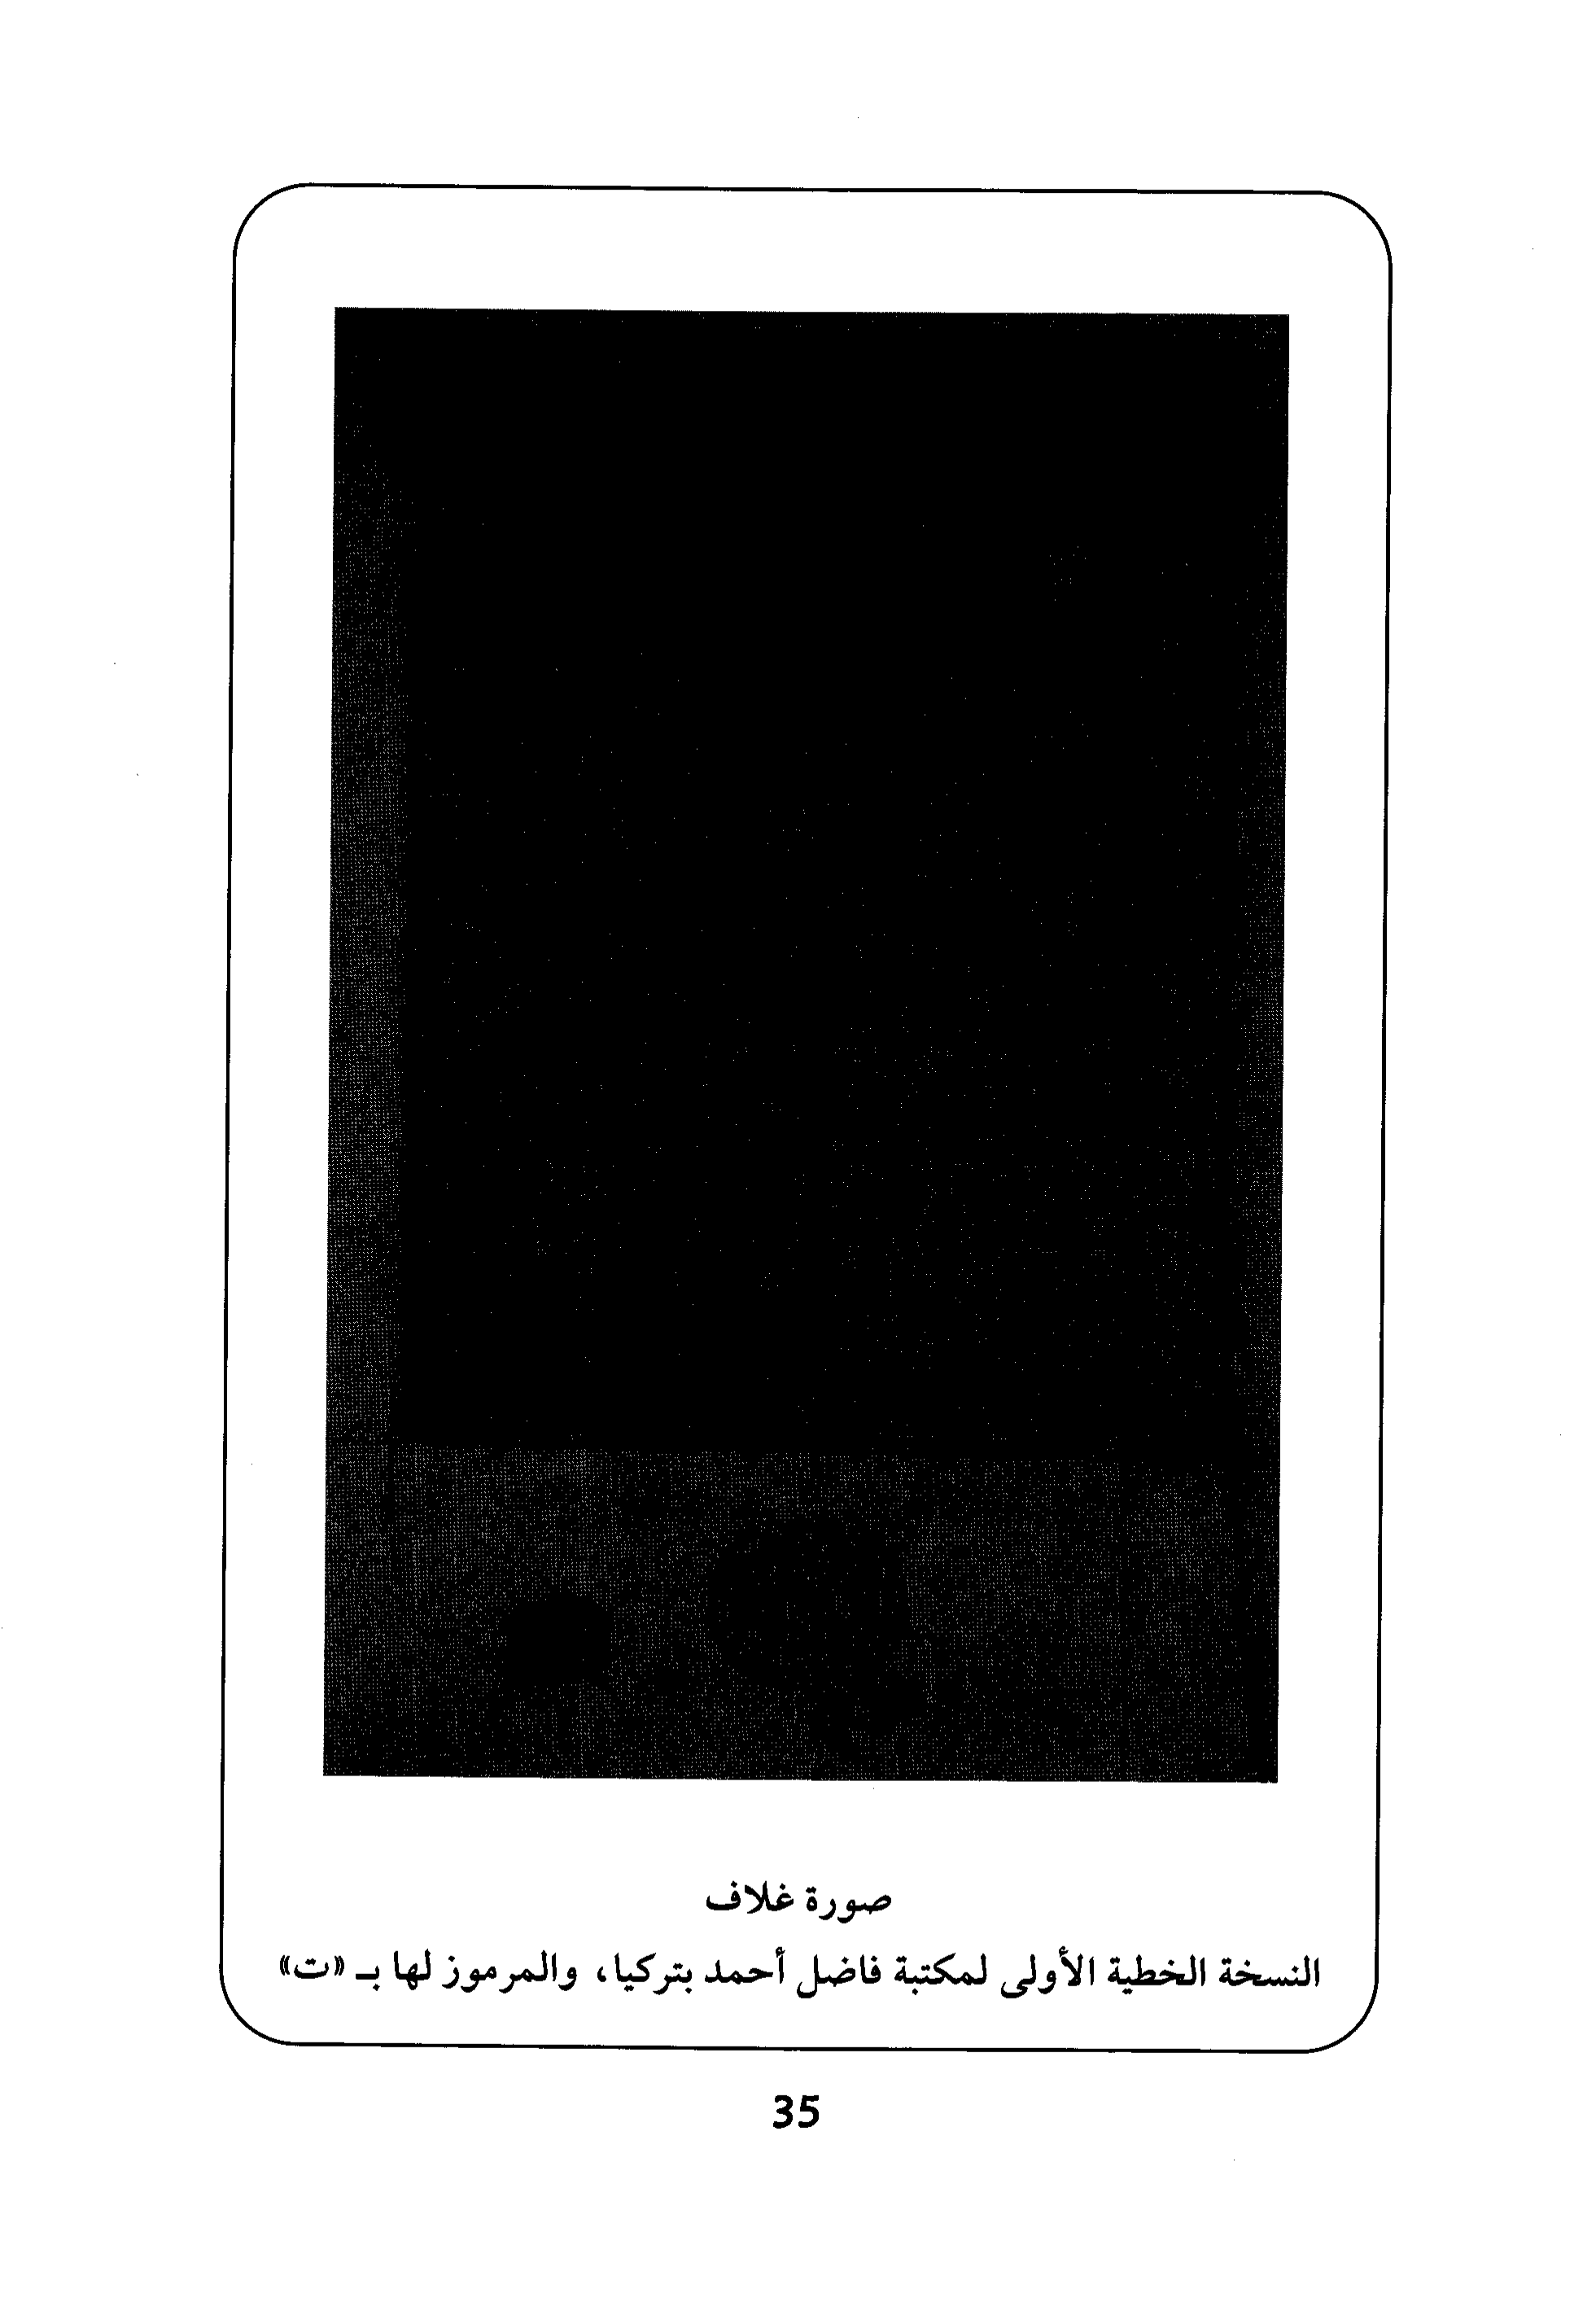 صورة غلاف
النسخة الخطية الأولى لمكتبة فاضل أحمد بتركيا، والمرموز لها بـ «ت»
35